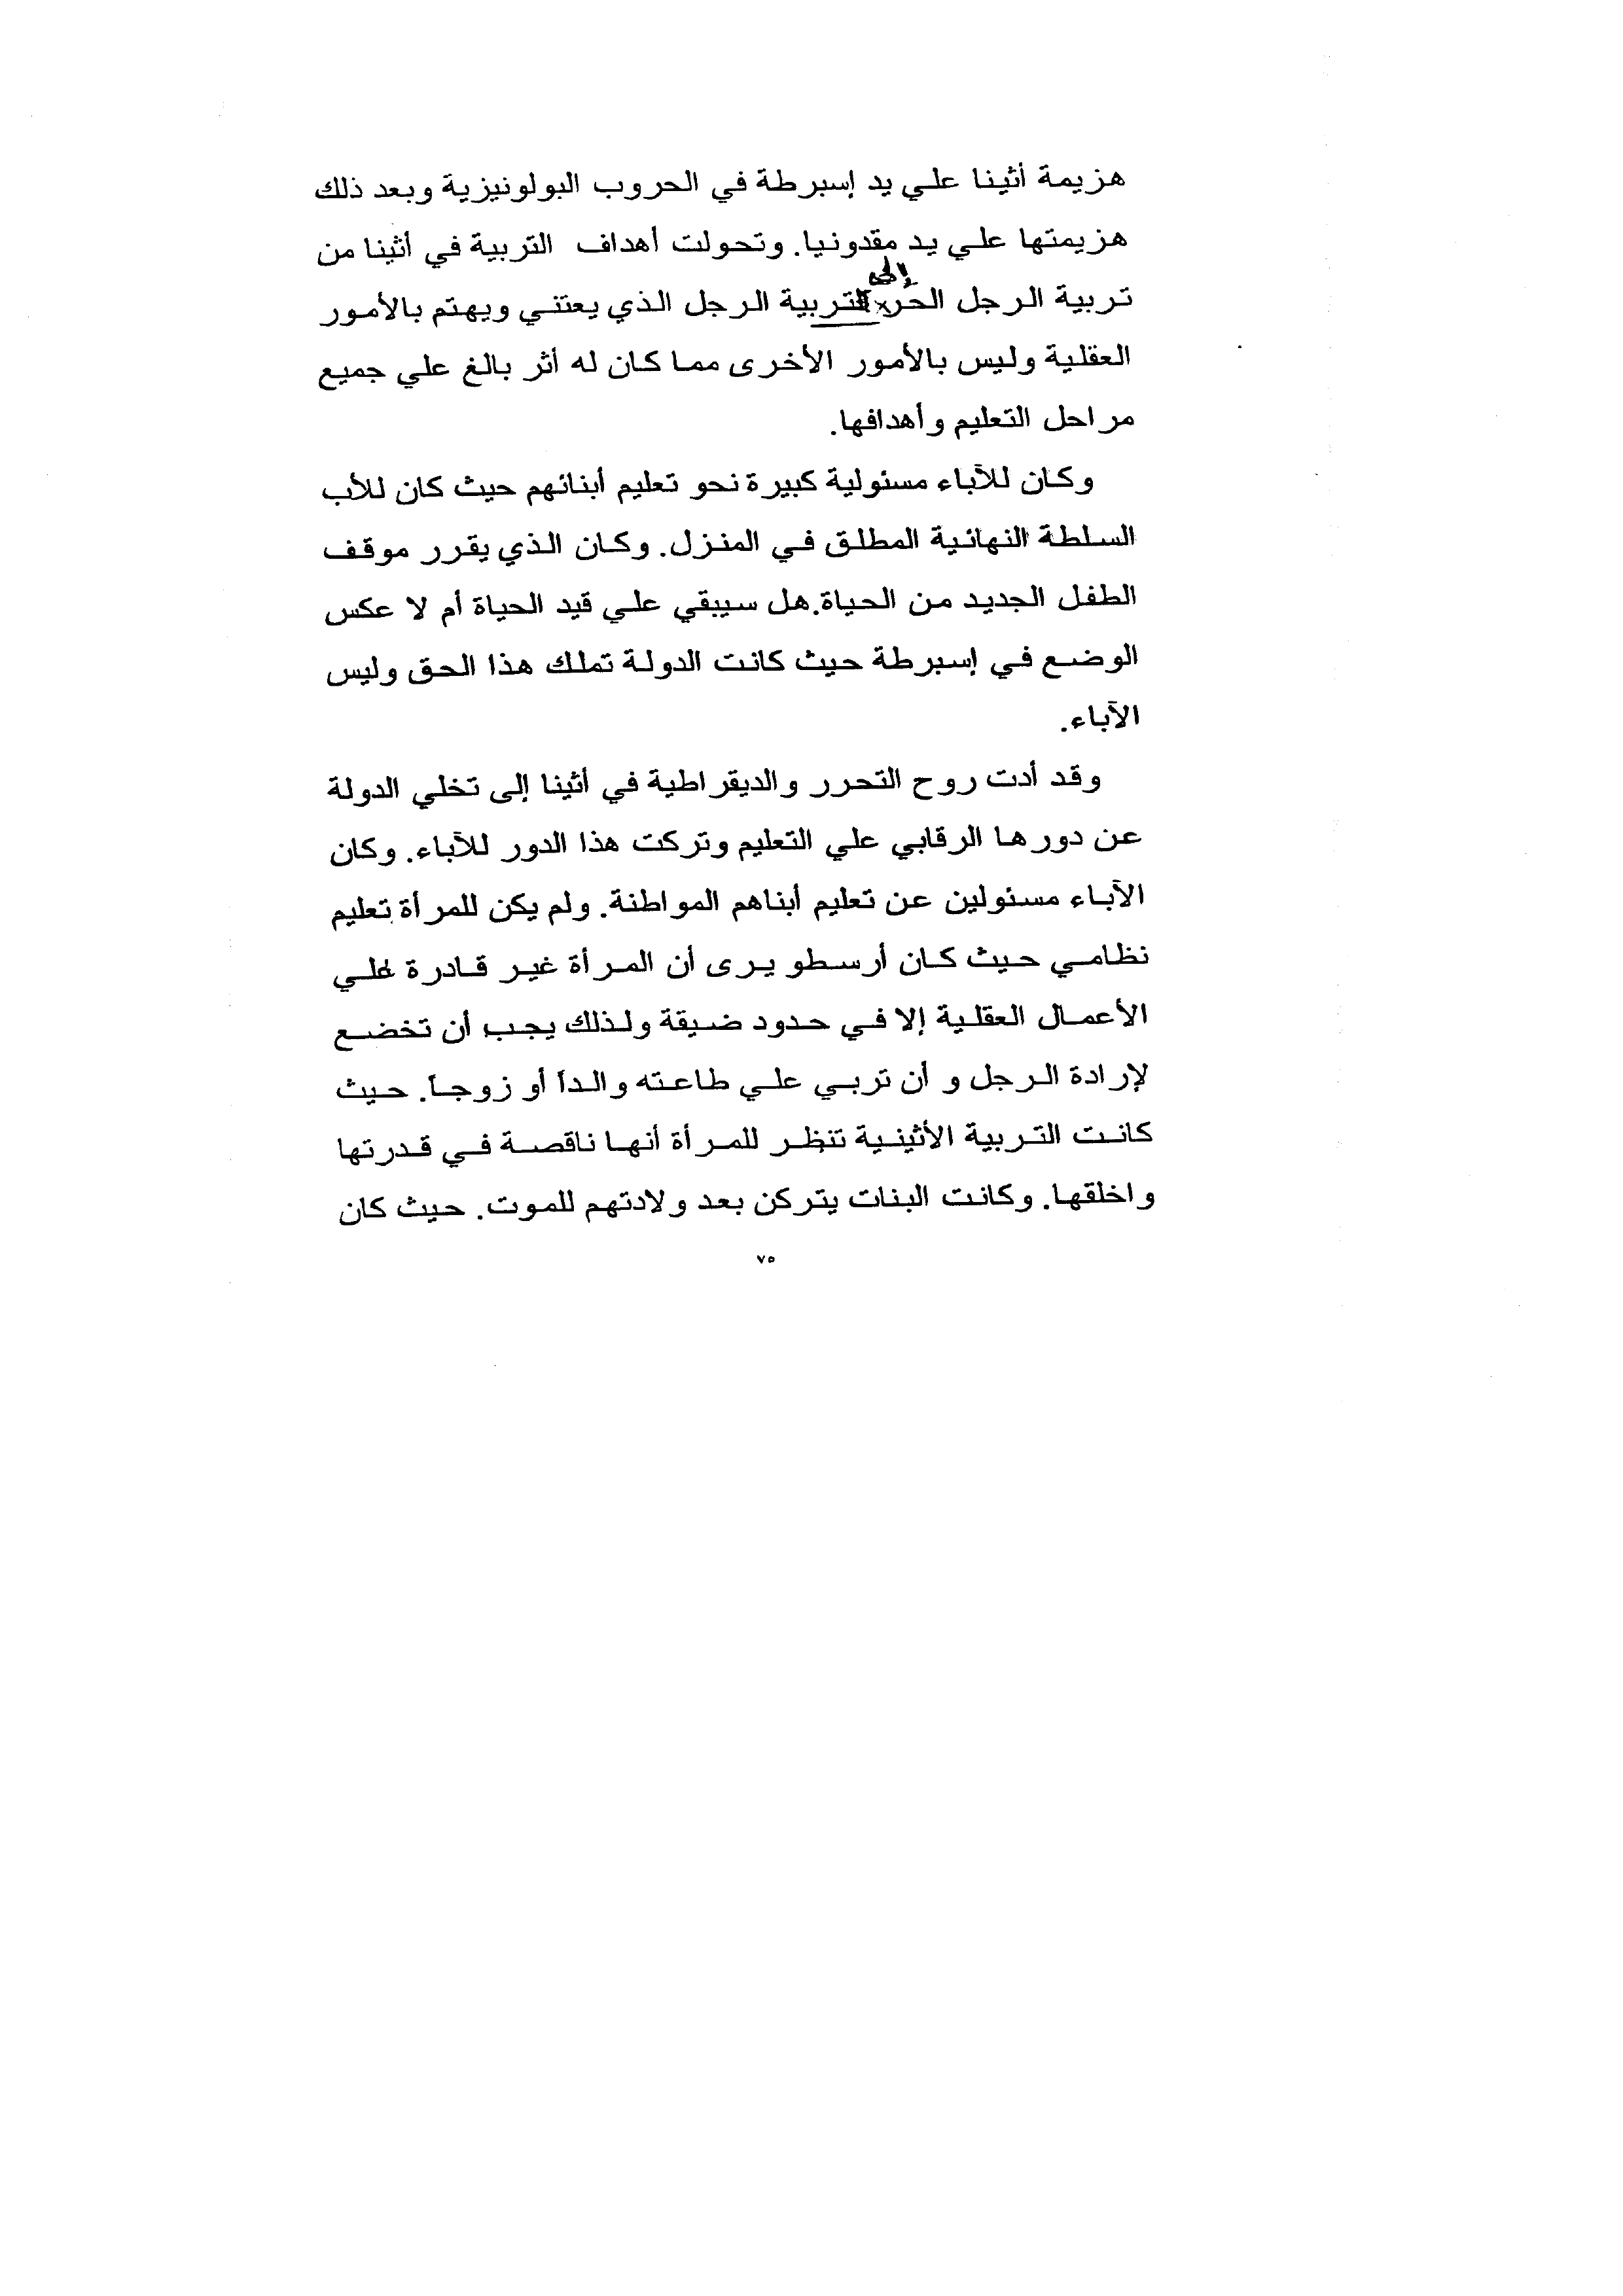 هزيمة أثينا علي يد إسبرطة في الحروب البولونيزية وبعد ذلك
هزيمتها علي يد مقدونيا. وتحولت أهداف التربية في أثينا من
إلى
تربية الرجل الحر التربية الرجل الذي يعتني ويهتم بالأمور
العقلية وليس بالأمور الأخرى مما كان له أثر بالغ علي جميع
مراحل التعليم وأهدافها.
وكان للآباء مسئولية كبيرة نحو تعليم أبنائهم حيث كان للأب
السلطة النهائية المطلق في المنزل. وكان الذي يقرر موقف
الطفل الجديد من الحياة.هل سيبقي علي قيد الحياة أم لا عكس
الوضع في إسبرطة حيث كانت الدولة تملك هذا الحق وليس
الآباء.
وقد أدت روح التحرر والديقراطية في أثينا إلى تخلي الدولة
عن دورها الرقابي علي التعليم وتركت هذا الدور للآباء. وكان
الآباء مسئولين عن تعليم أبناهم المواطنة. ولم يكن للمرأة تعليم
نظامي حيث كان أرسطو يرى أن المرأة غير قادرة علي
الأعمال العقلية إلا في حدود ضيقة ولذلك يجب أن تخضع
لإرادة الرجل و أن تربي علي طاعته والداً أو زوجاً. حيث
كانت التربية الأثينية تنظر للمرأة أنها ناقصة في قدرتها
واخلقها. وكانت البنات يتركن بعد ولادتهم للموت. حيث كان
٧٥